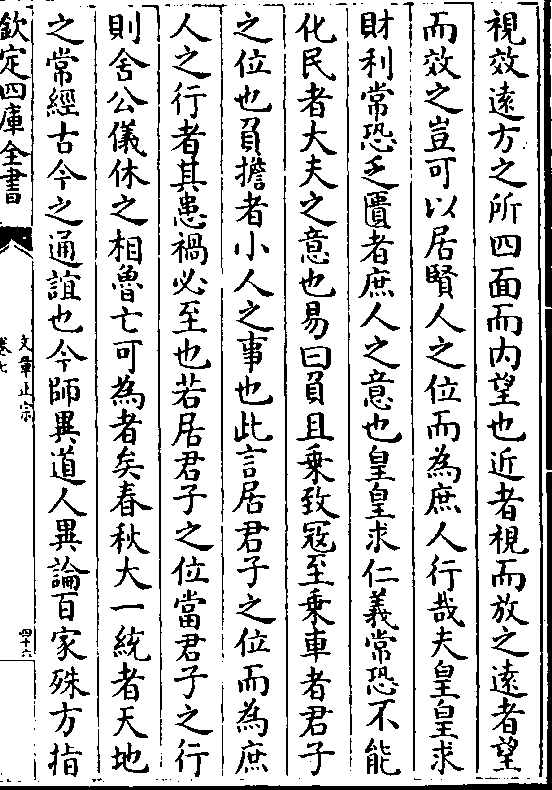 視效遠方之所四面而内望也近者視而放之遠者望
而效之豈可以居賢人之位而為庶人行哉夫皇皇求
財利常恐乏匱者庶人之意也皇皇求仁義常恐不能
化民者大夫之意也易曰負且乗致寇至乗車者君子
之位也負擔者小人之事也此言居君子之位而為庶
人之行者其患禍必至也若居君子之位當君子之行
則舍公儀休之相魯亡可為者矣春秋大一統者天地
之常經古今之通誼也今師異道人異論百家殊方指
欽定四庫全書
文章正宗
卷七
四十六